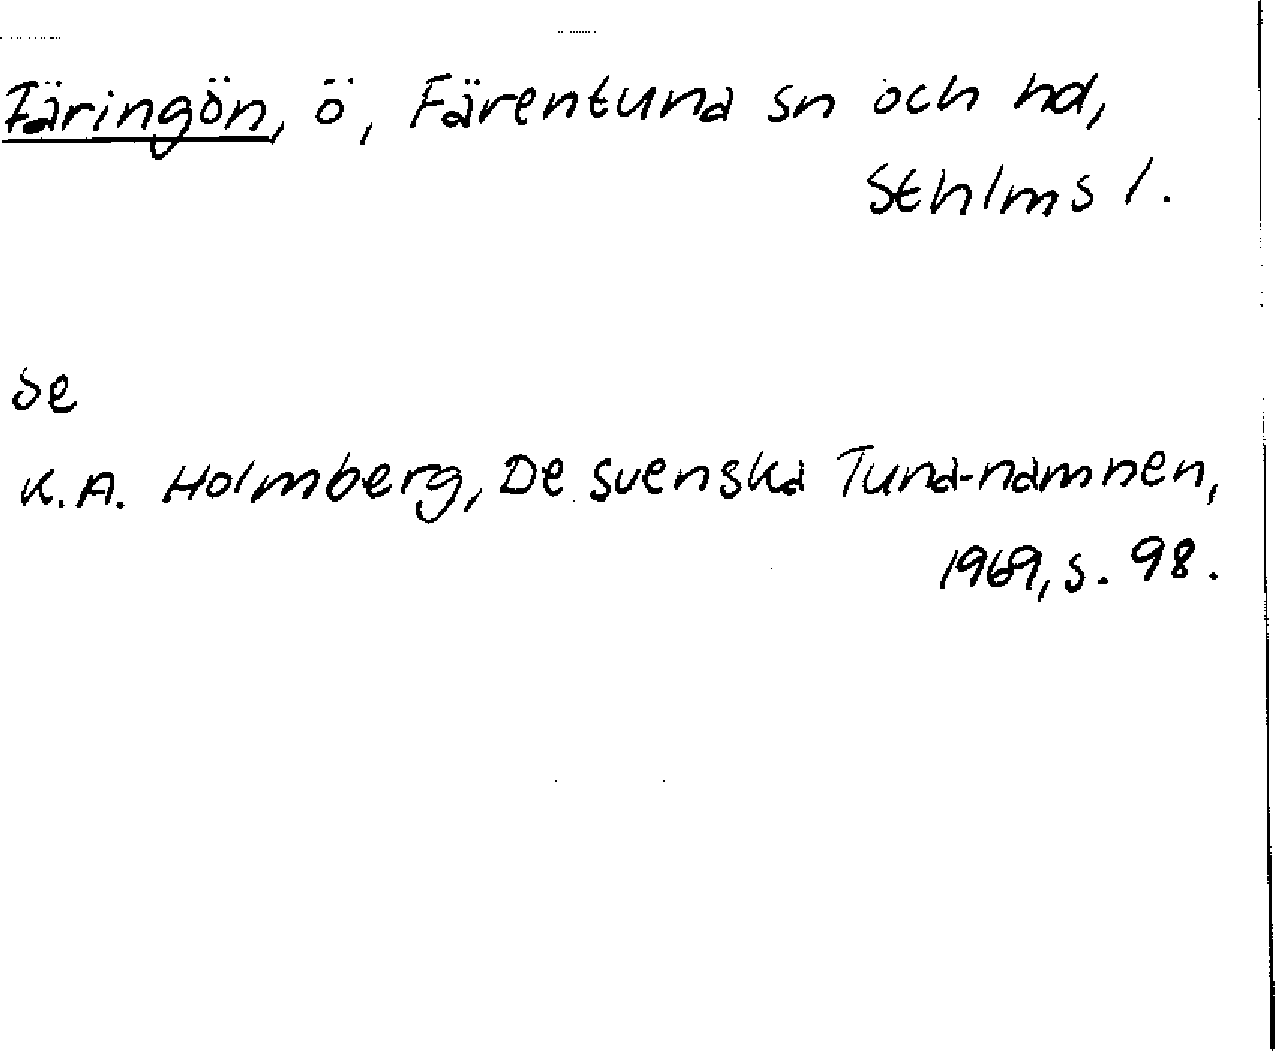 Färingön, ö, Färentuna sn och hd,
Sthlms l.
se
K.A. Holmberg, De svenska Tuna-namnen,
1969, s. 98.